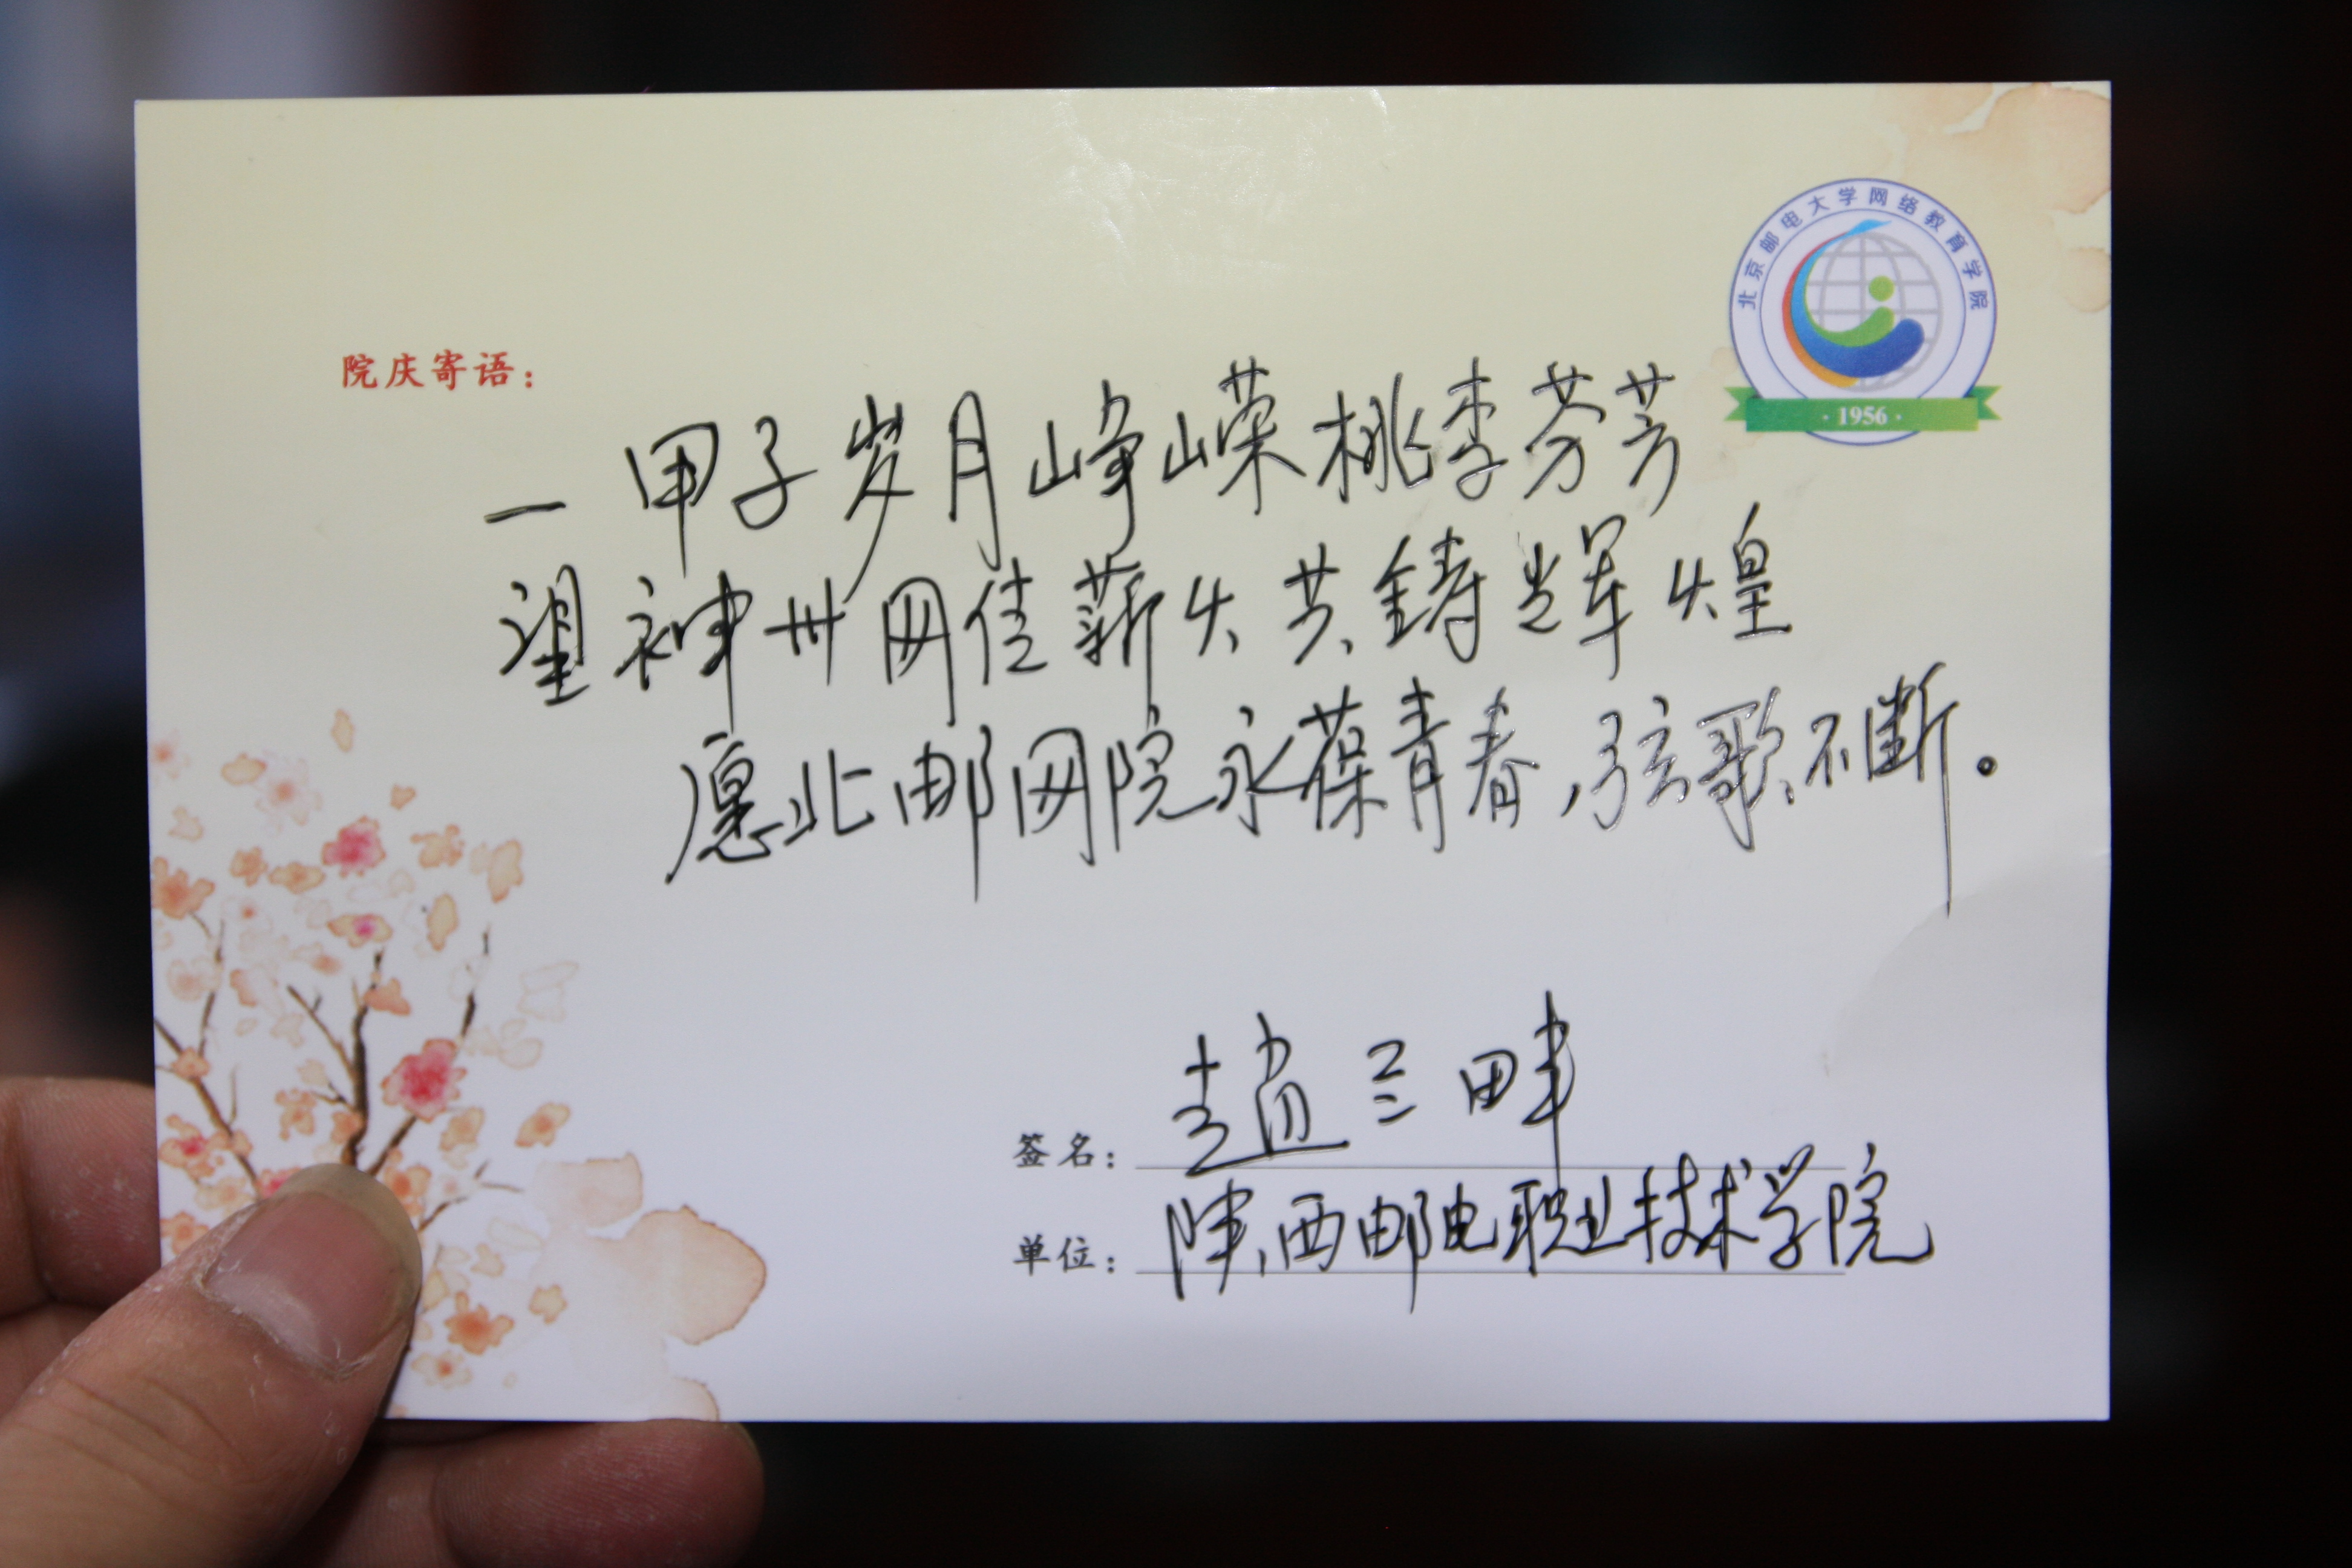 北京邮电大学网络教育学院
· 1956 ·
院庆寄语：
一甲子岁月峥嵘桃李芬芳
望神州网佳薪火共铸辉煌
愿北邮网院永葆青春，弦歌不断。
签名：赵三畔
单位：陕西邮电职业技术学院